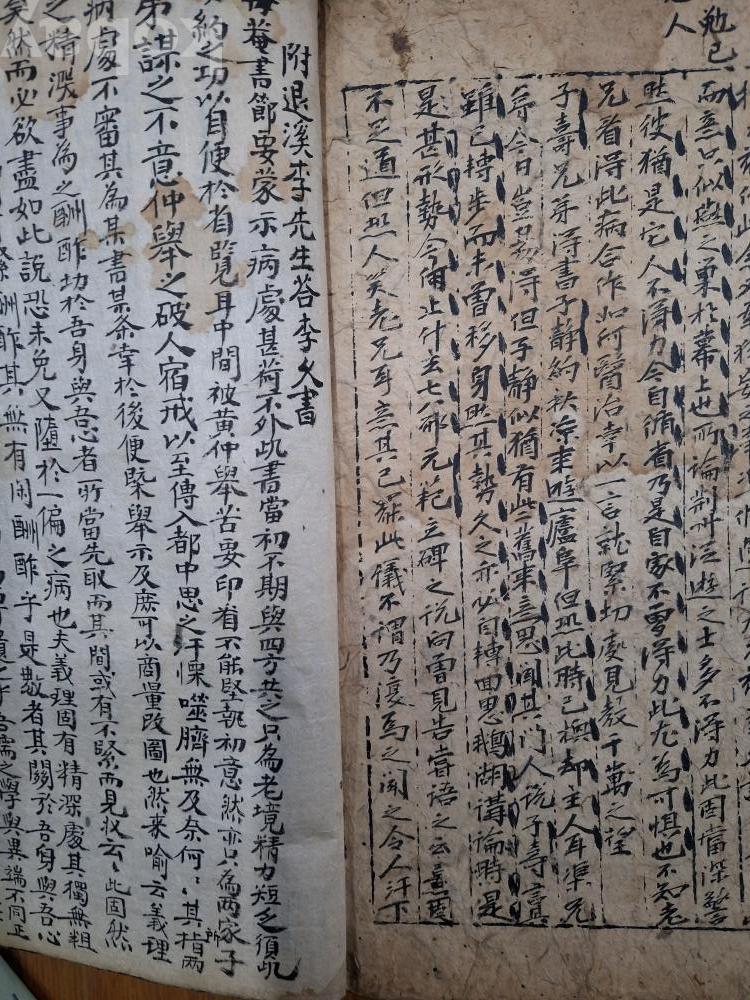 勉己
人
而意只似燕之巢於幕上也所論荆州從遊之士多不得力此固當深警
然彼猶是它人不得力今自循省乃是自家不曾得力此尤為可懼也不知老
兄看得此病合作如何醫治幸以一言就緊切處見教千萬之望
子壽兄弟得書子靜約秋凉來遊廬阜但恐此時已換却主人耳渠兄
弟今日豈易得但子靜似猶有些舊來意思聞其門人說子壽言
雖已轉步而未曾移身然其勢久之亦必自轉回思鵝湖講論時是
是甚形勢今何止什去七八邪元範立碑之說向曾見告嘗語之云
不足道但恐人笑老兄耳意其已罷此儀不謂乃復為之聞之令人汗下
附退溪李先生荅李久書
晦菴書節要蒙示病處甚荷不外此書當初不期與四方共之只為老境精力短乏須此
約之功以自便於省覽耳中間被黄仲舉苦要印看不能堅執初意然亦只為兩家子
弟謀之不意仲舉之破人宿戒以至傳入都中思之汗慄噬臍無及奈何〻其指兩
病處不審其為某書某条幸於後便槩舉示及庶可以商量改圖也然來喻云義理
之精深事為之酬酢切於吾身與吾心者所當先取而其間或有不緊而見收云〻此固然
矣然而必欲盡如此說恐未免又隨於一偏之病也夫義理固有精深處其獨無粗
酬酢其無有閑酬酢乎是數者其關於吾身與吾心
之學與異端不同正